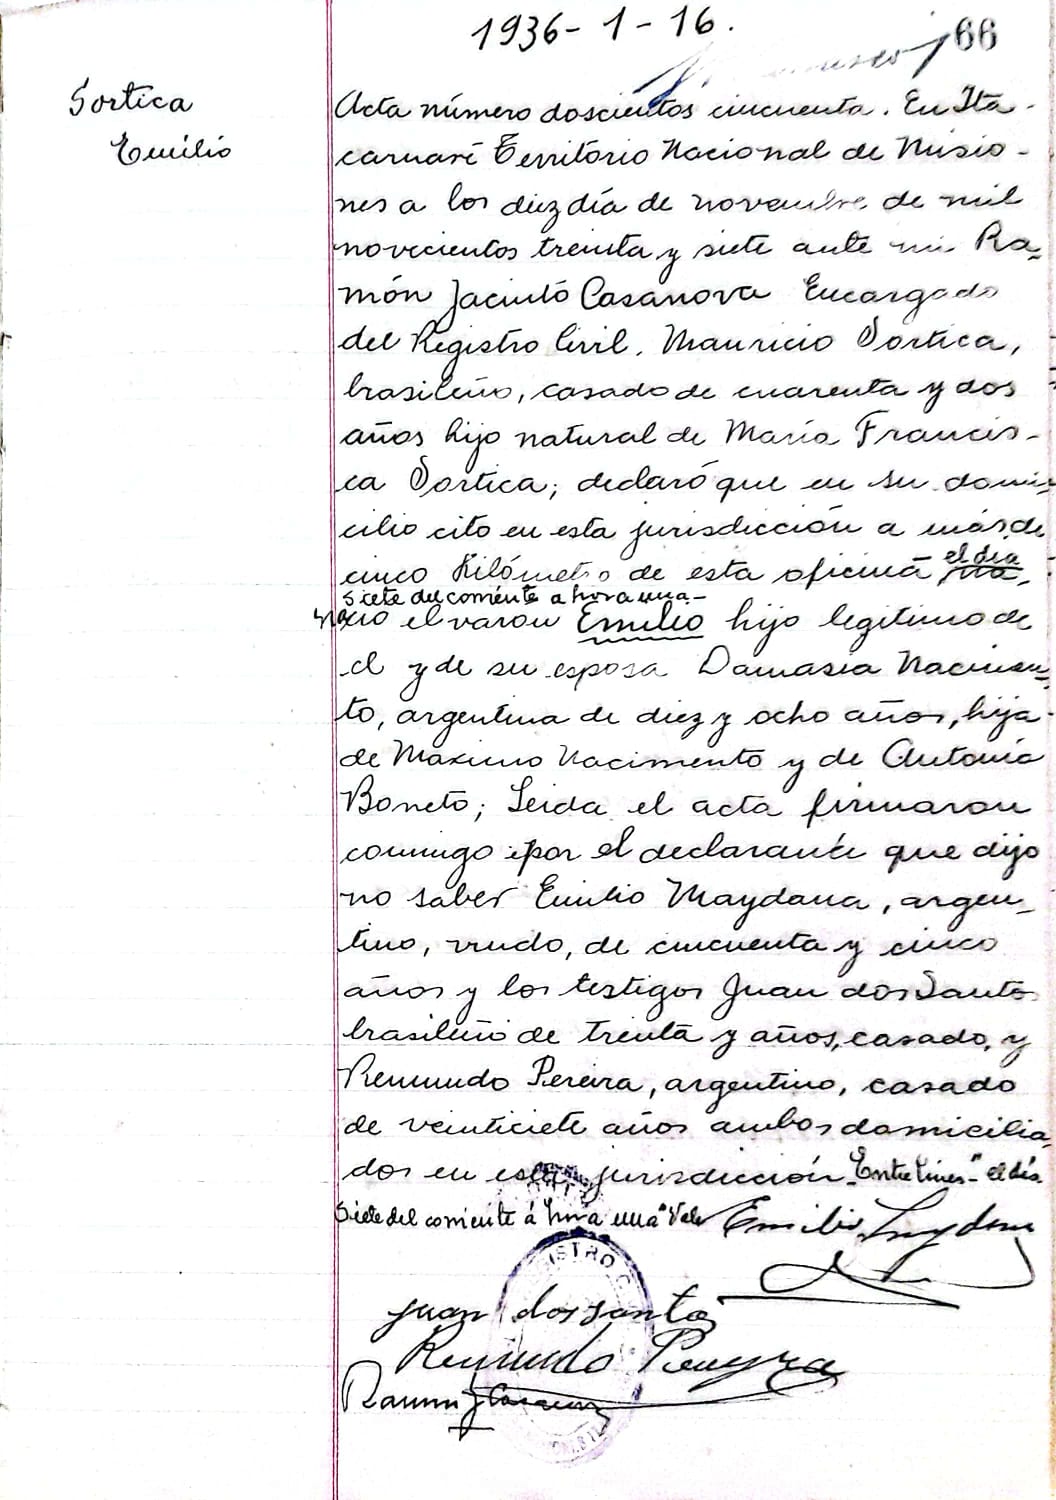 1936-1-16.
66
Sortica
Emilio
Acta número doscientos cincuenta. En Ita-
caruaré Territorio Nacional de Misio-
nes a los diez día de noviembre de mil
novecientos treinta y siete ante mi Ra-
món Jacinto Casanova Encargado
del Registro Civil, Mauricio Sortica,
brasileño, casado de cuarenta y dos
años hijo natural de María Francis-
ca Sortica; declaró que en su domi-
cilio cito en esta jurisdicción a más de
cinco Kilómetro de esta oficina el día
siete del corriente a hora una-
nacio el varon Emilio hijo legitimo de
el y de su esposa Damasia Nacimen-
to, argentina de diez y ocho años, hija
de Maximo Nacimento y de Antonia
Boneto; Leida el acta firmaron
conmigo por el declarante que dijo
no saber Emilio Maydana, argen-
tino, viudo, de cincuenta y cinco
años y los testigos Juan dos Santos
brasileño de treinta y años, casado, y
Remundo Pereira, argentino, casado
de veinticiete años ambos domicilia-
dos en esta jurisdicción-Entre lineas-"el día
siete del corriente á hora una" Vale
Emilio Maydana
Juan dos santos
Remundo Pereyra
Ramon J Casanova